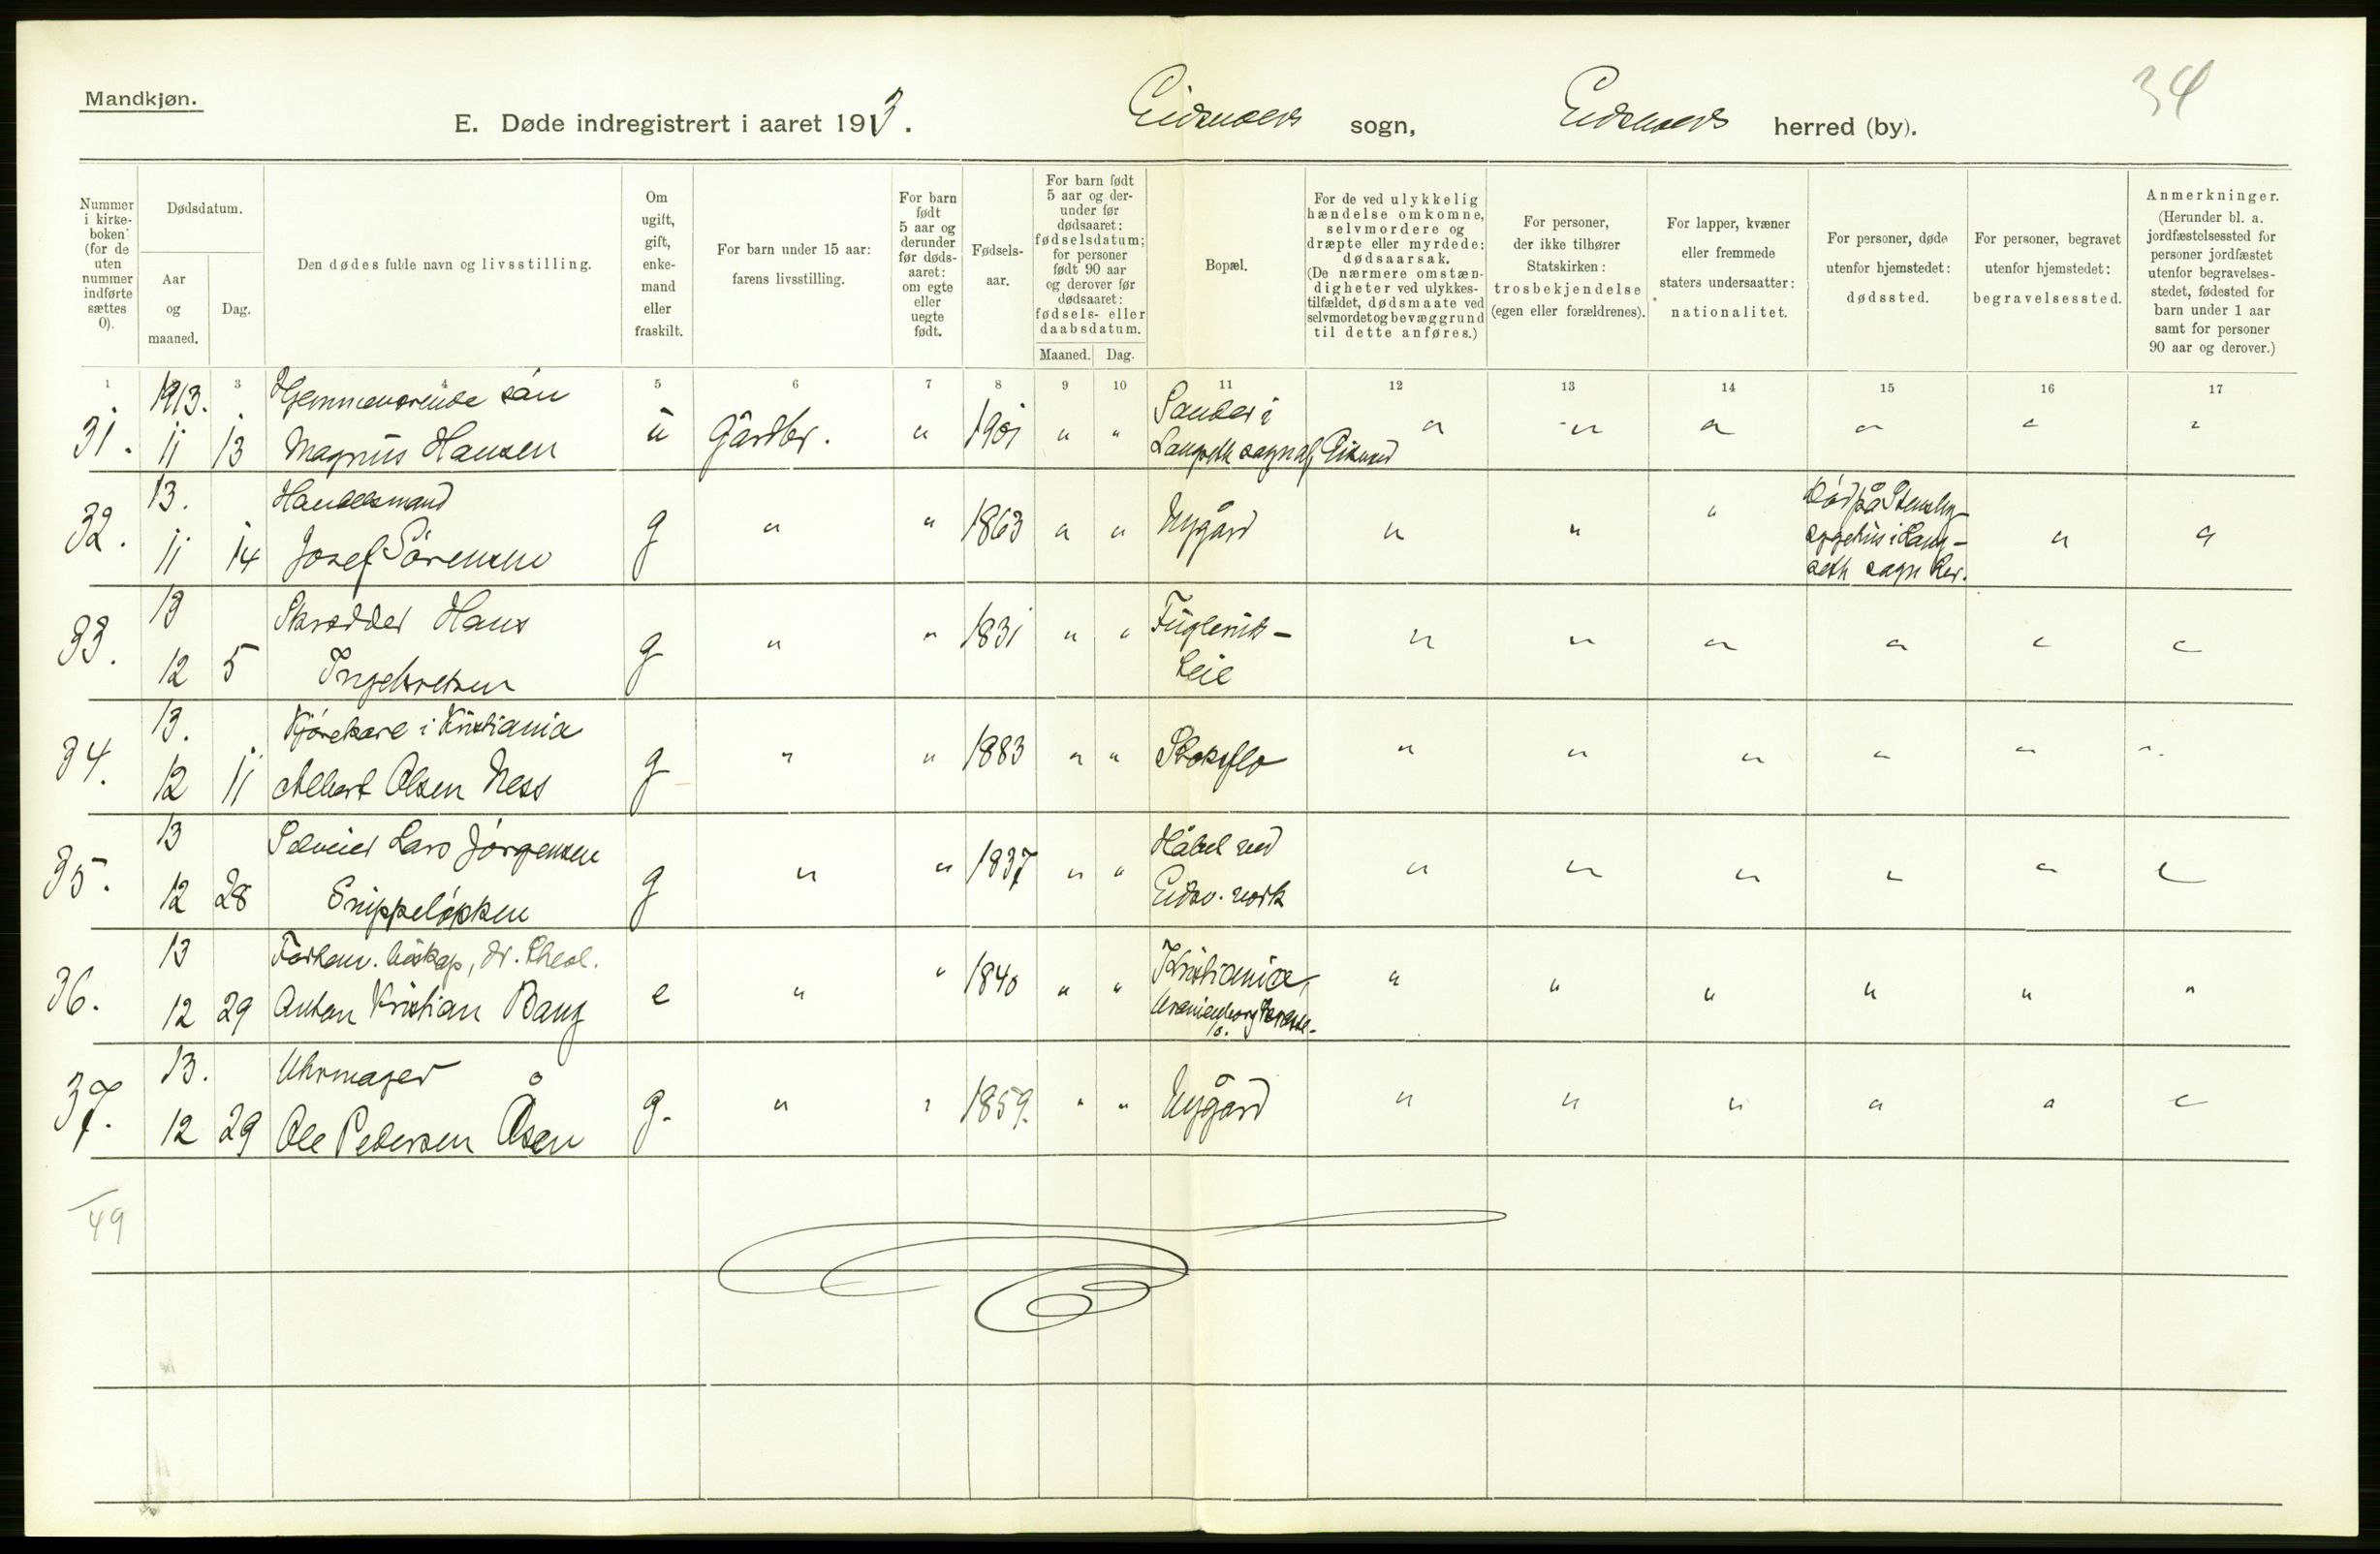 Mandkjøn.
34
E. Døde indregistrert i aaret 1913. Eidsvolds sogn, Eidsvolds herred (by).
Nummer i kirkeboken (for de uten nummer indførte sættes 0).
Dødsdatum.
Aar og maaned.
Dag.
Den dødes fulde navn og livsstilling.
Om ugift, gift, enkemand eller fraskilt.
For barn under 15 aar: farens livsstilling.
For barn født 5 aar og derunder før dødsaaret: om egte eller uegte født.
Fødselsaar.
For barn født 5 aar og derunder før dødsaaret: fødselsdatum; for personer født 90 aar og derover før dødsaaret: fødsels- eller daabsdatum.
Maaned. Dag.
Bopæl.
For de ved ulykkelig hændelse omkomne, selvmordere og dræpte eller myrdede: dødsaarsak. (De nærmere omstændigheter ved ulykkestilfældet, dødsmaate ved selvmordet og bevæggrund til dette anføres.)
For personer, der ikke tilhører Statskirken: trosbekjendelse (egen eller forældrenes).
For lapper, kvæner eller fremmede staters undersaatter: nationalitet.
For personer, døde utenfor hjemstedet: dødssted.
For personer, begravet utenfor hjemstedet: begravelsessted.
Anmerkninger. (Herunder bl. a. jordfæstelsessted for personer jordfæstet utenfor begravelsesstedet, fødested for barn under 1 aar samt for personer 90 aar og derover.)
1 3 4 5 6 7 8 9 10 11 12 13 14 15 16 17
1913. Hjemmeværende sån Sander i
31. 11 13 Magnus Hansen u Gårdbr. " 1901 " " Langseth sogn af Eidsvold " " " " " "
13. Handelsmand Død på Stensby
32. 11 14 Josef Sørensen g " " 1863 " " Nygård " " " sygehus i Lang- " "
seth sogn her.
13 Skrædder Hans Fuglevik-
33. 12 5 Ingebretsen g " " 1831 " " leie " " " " " "
13. Kjørekare i Kristiania
34. 12 11 Albert Olsen Ness g " " 1883 " " Stoksflo " " " " " "
13 Selveier Lars Jørgensen Håbel ved
35. 12 28 Snippeløkken g " " 1837 " " Eidsv. verk " " " " " "
13 Forhenv. biskop, dr. theol. Kristiania,
36. 12 29 Anton Kristian Bang e " " 1840 " " Uranienborg terasse " " " " " "
10.
13. Uhrmager
37. 12 29 Ole Pedersen Åsen g. " " 1859. " " Nygård " " " " " "
49